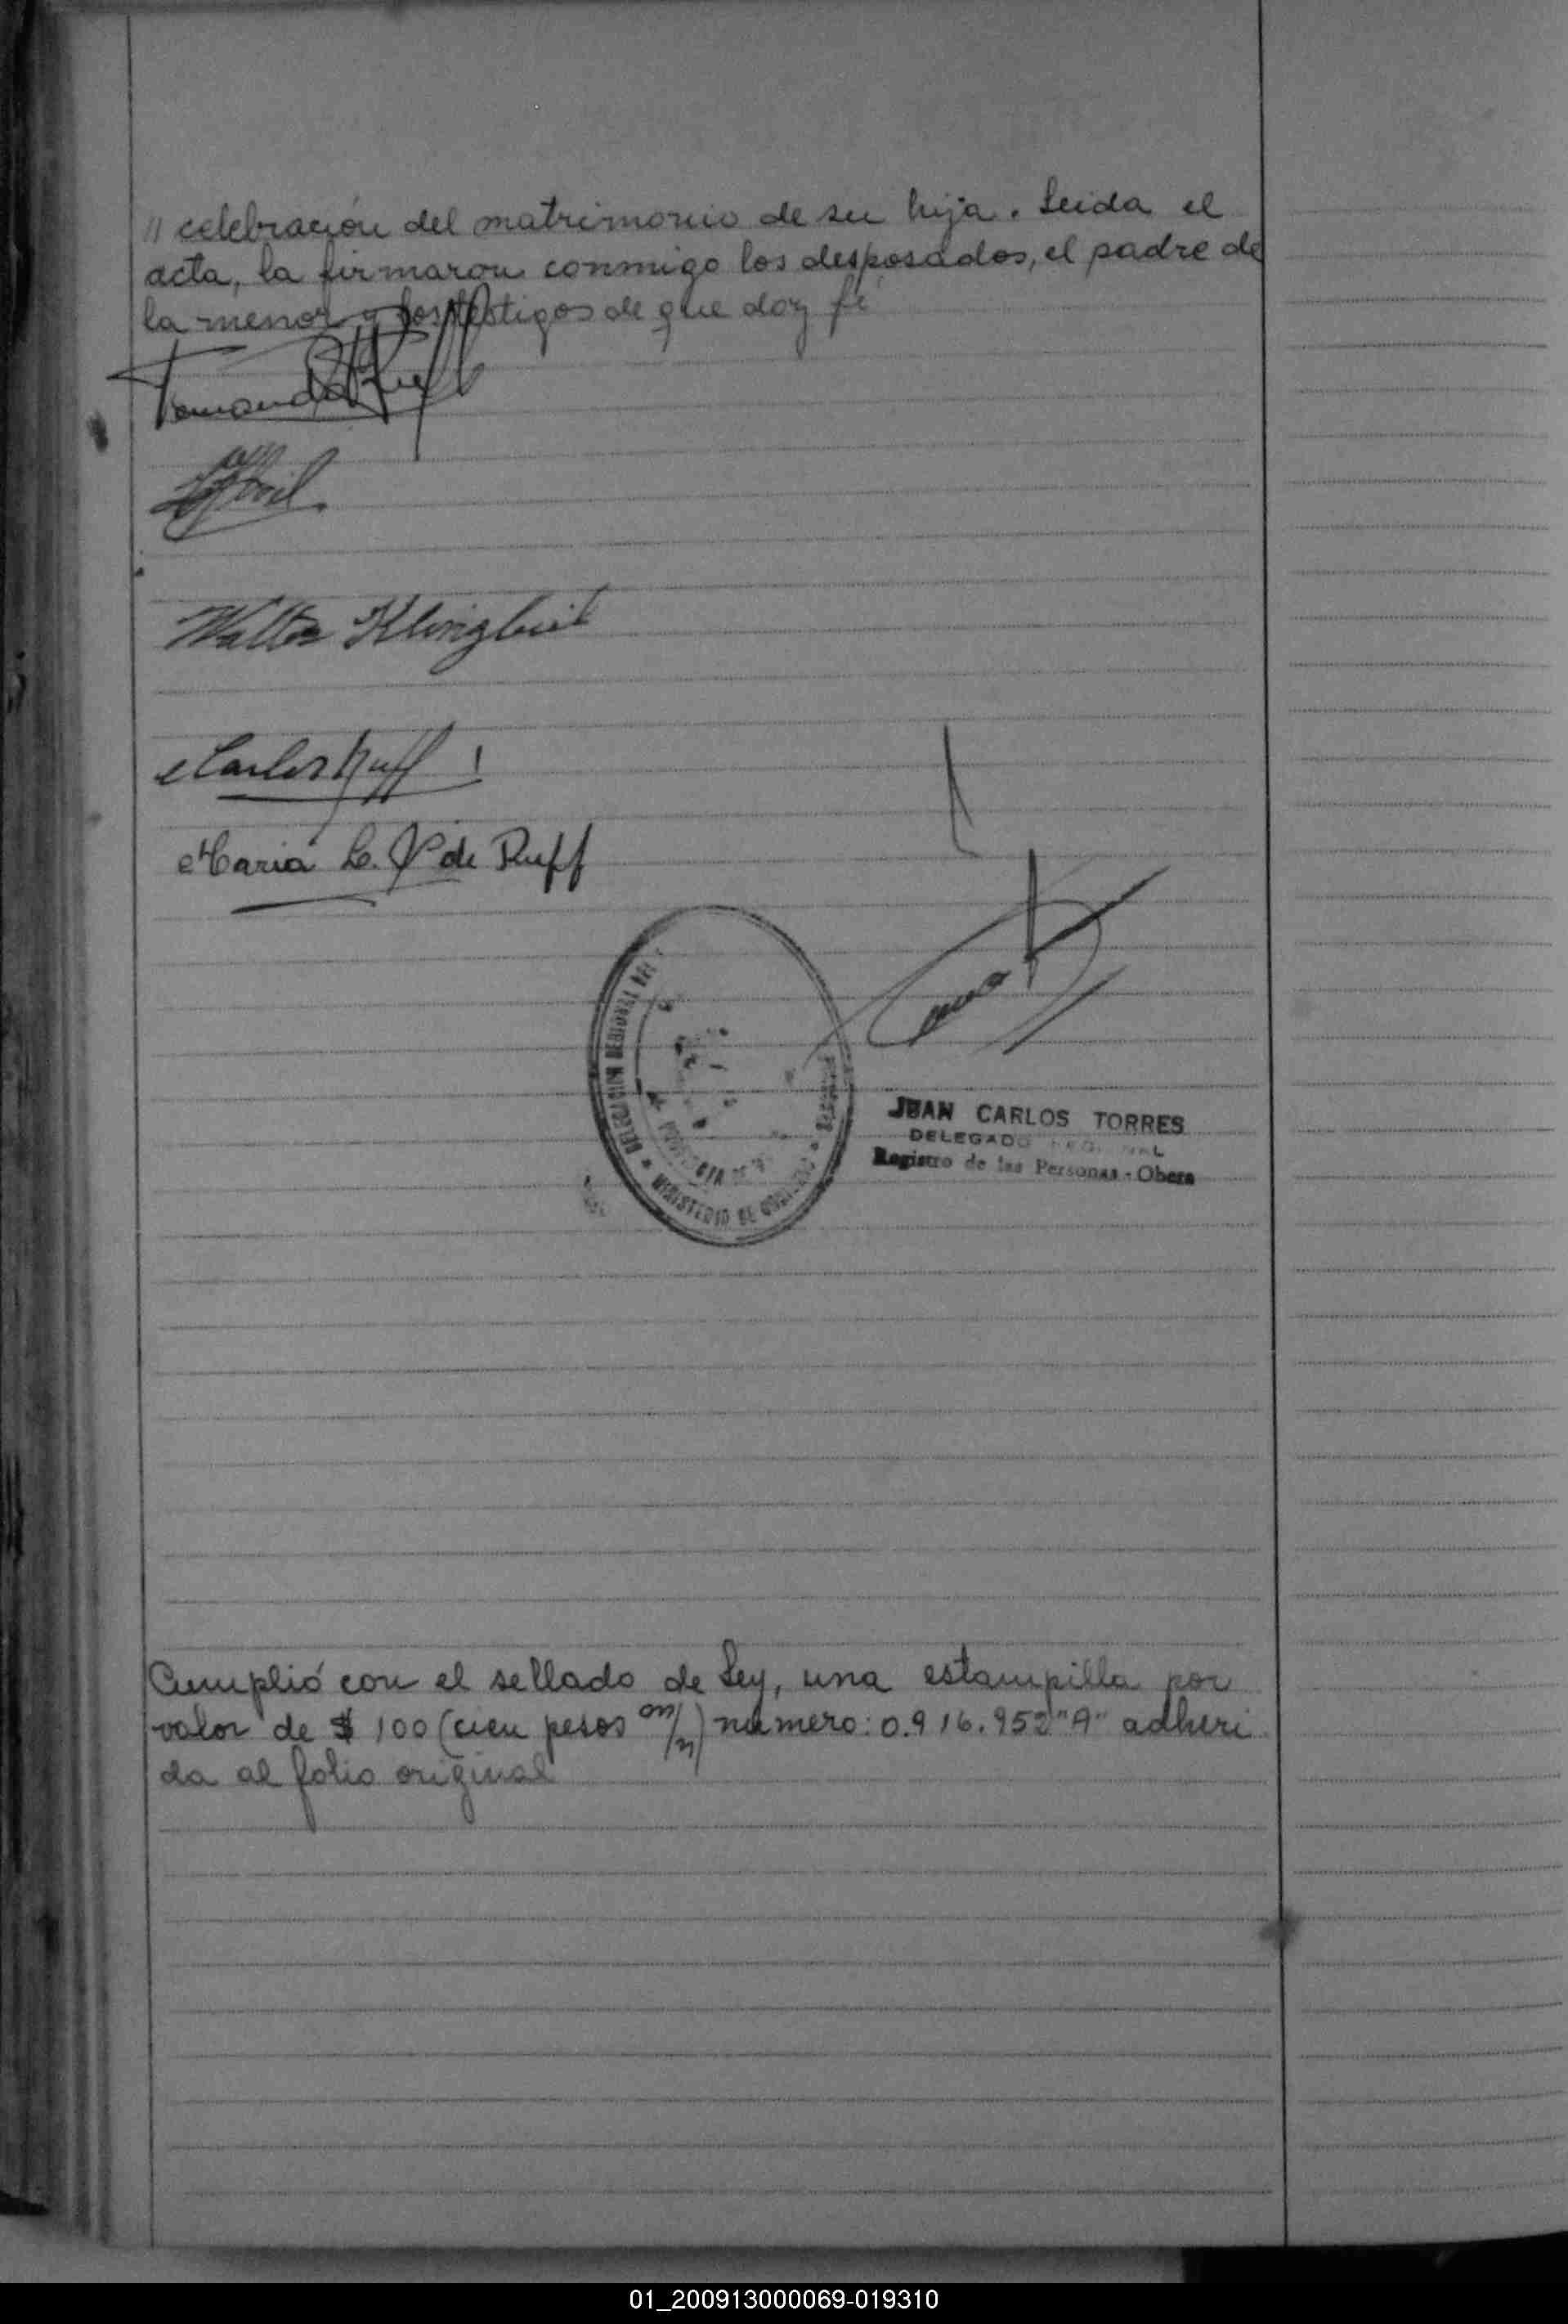 // celebración del matrimonio de su hija. Leida el
acta, la firmaron conmigo los desposados, el padre de
la menor y los testigos de que doy fé
Walter
Carlos Ruff
Maria L. de Ruff
DELEGACION REGIONAL DEL
MINISTERIO DE
JUAN CARLOS TORRES
DELEGADO REGIONAL
Registro de las Personas - Obera
Cumplió con el sellado de Ley, una estampilla por
valor de $ 100 (cien pesos m/n) número: 0.916.952 "A" adheri
da al folio original
01_200913000069-019310